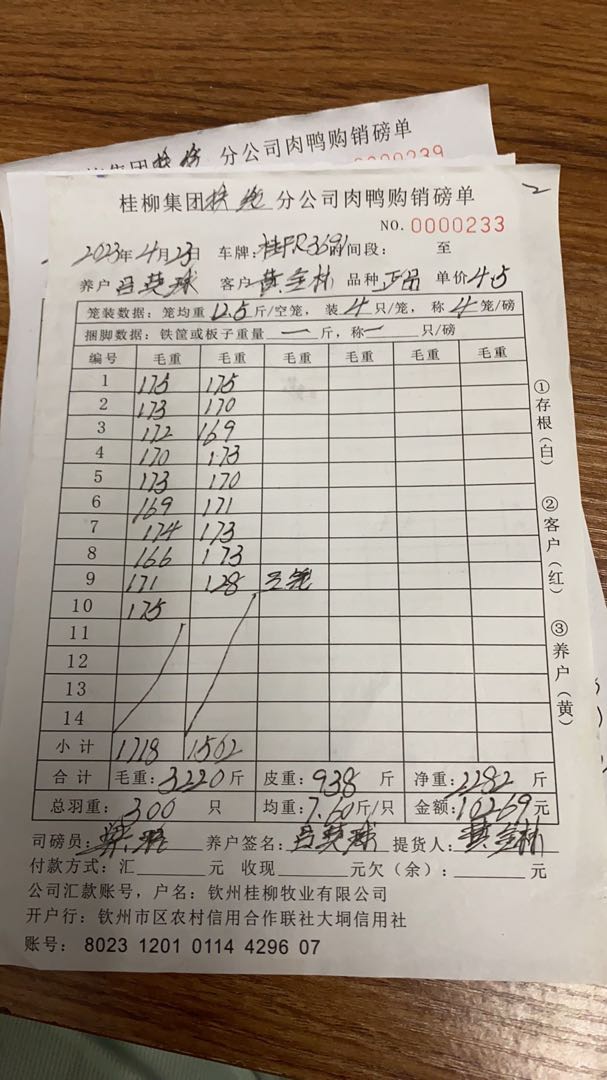 分公司肉鸭购销磅单
0000239
桂柳集团 分公司肉鸭购销磅单
2
NO. 0000233
2023年4月23日 车牌:桂FR3691 时间段: 至
养户 吕英球 客户 黄金林 品种 正品 单价 4.5
笼装数据:笼均重 12.5 斤/空笼,装 4 只/笼,称 4 笼/磅
捆脚数据:铁筐或板子重量 一 斤,称 一 只/磅
编号 毛重 毛重 毛重 毛重 毛重
1 175 175
2 173 170
3 172 169
4 170 173
5 173 170
6 169 171
7 174 173
8 166 173
9 171 128 三笼
10 175
11
12
13
14
小计 1718 1502
合计 毛重:3220斤 皮重:938 斤 净重:2282 斤
总羽重: 300 只 均重:7.60斤/只 金额:10269元
①存根(白) ②客户(红) ③养户(黄)
司磅员: 养户签名:吕英球 提货人:黄金林
付款方式:汇 元 收现 元欠(余): 元
公司汇款账号,户名:钦州桂柳牧业有限公司
开户行:钦州市区农村信用合作联社大垌信用社
账号: 8023 1201 0114 4296 07